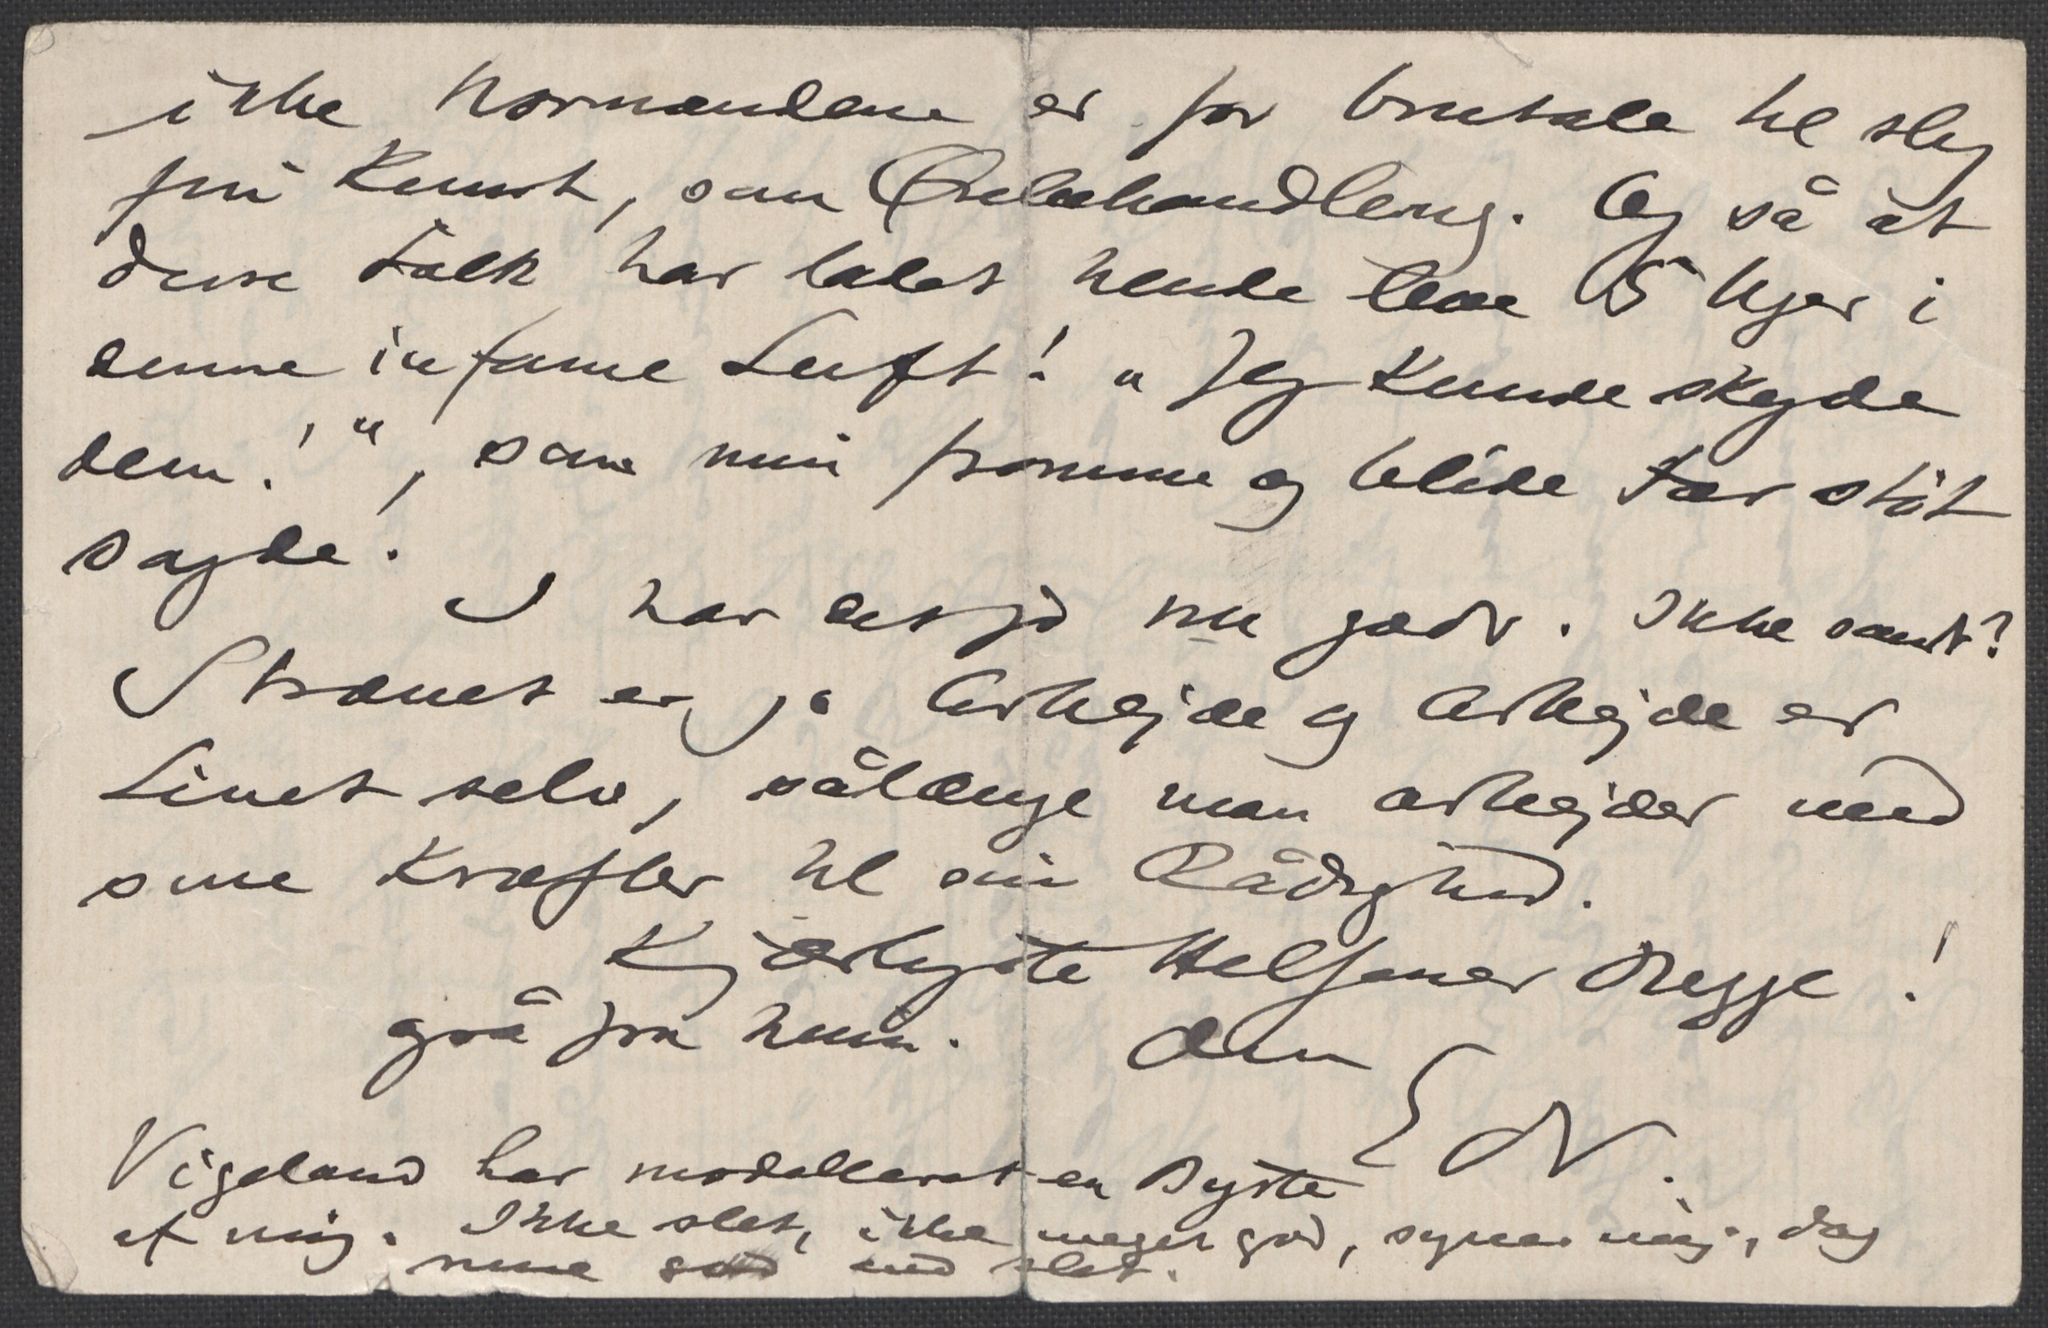 ikke Normændene er for brutale til slig
fin Kunst, som Ørebehandling. Og så at
disse Folk har ladet hende leve 5 Uger i
denne infame Luft! „Jeg kunde skyde
dem!“, som min fromme og blide Far støt
sagde.
I har det jo nu godt. Ikke sandt?
Strævet er jo Arbejde og Arbejde er
Livet selv, sålænge man arbejder med
sine Kræfter til sin Rådighed.
Kjærligste Helsener Begge!
også fra hende.
Din
E N.
Vigeland har modelleret en Byste
af mig. Ikke slet, ikke meget god, synes mig, dog
mere god end slet.